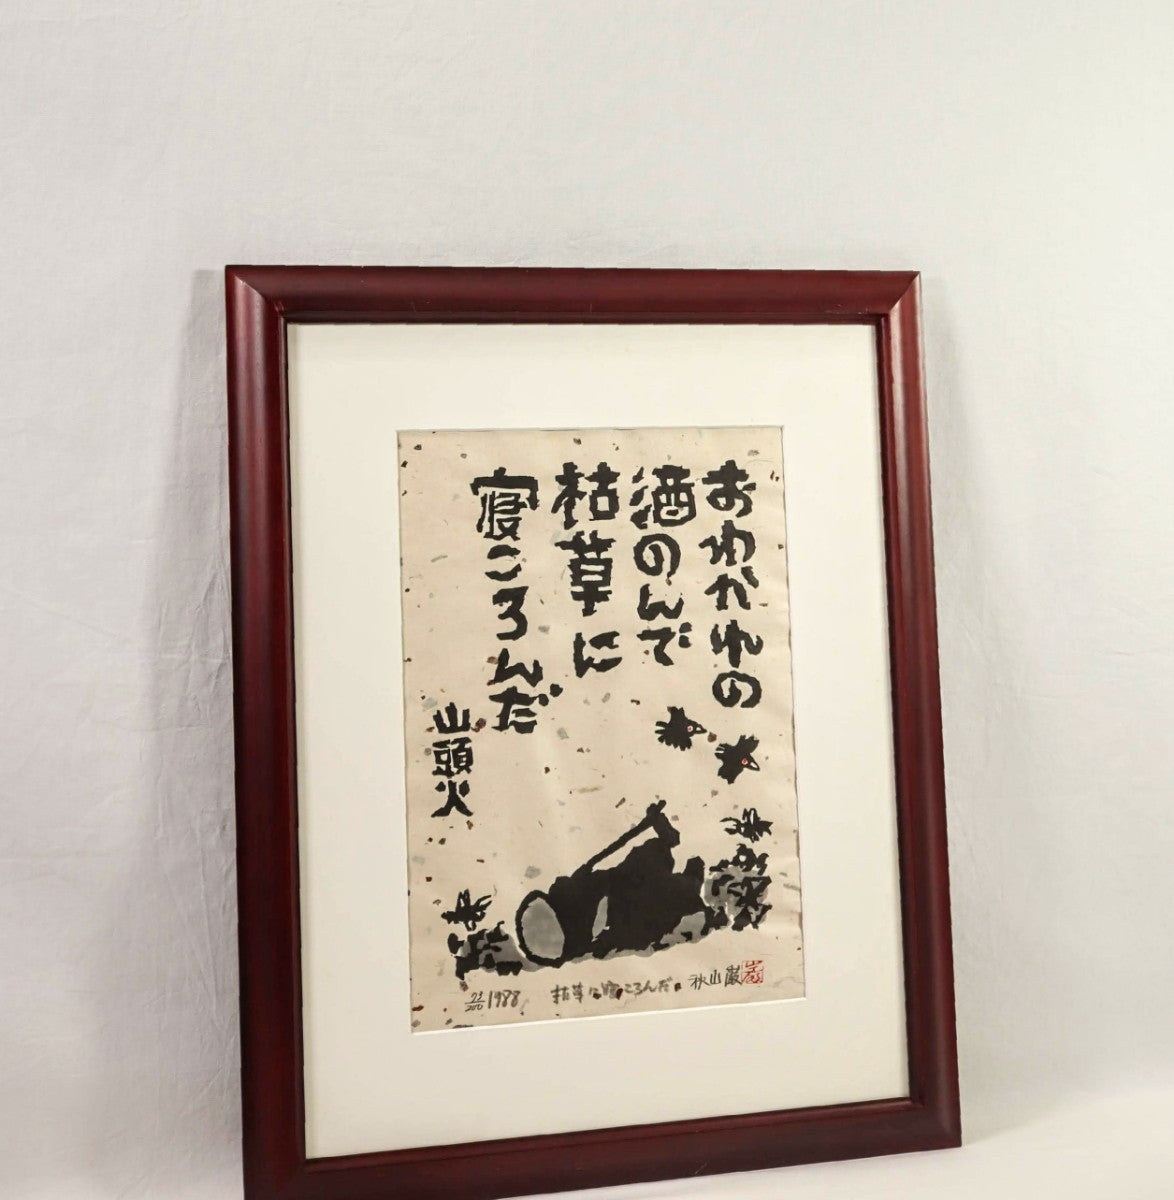 おわかれの
酒のんで
枯草に
寝ころんだ
山頭火
23/200 1988 枯草に寝ころんだ。 秋山巌